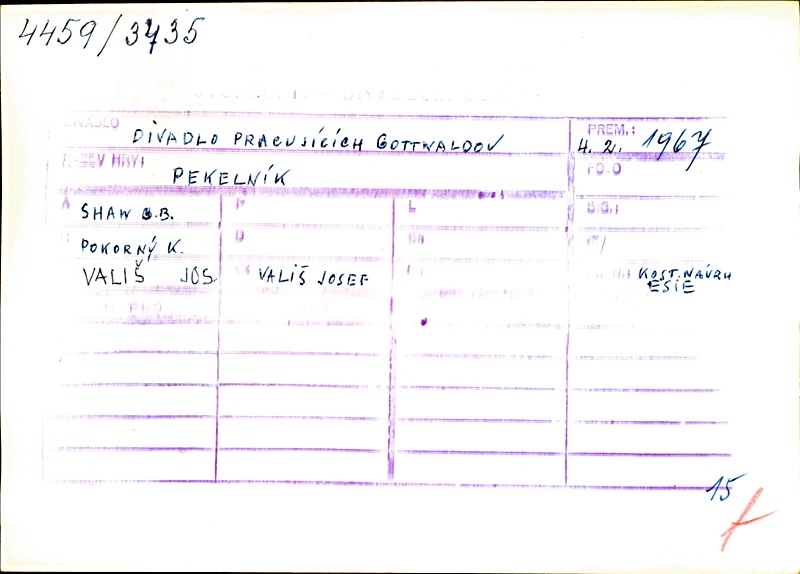 4459/3435
DIVADLO DIVADLO PRACUJÍCÍCH GOTTWALDOV PREM.: 4. 2. 1967
NÁZEV HRY: PEKELNÍK FOTO
A SHAW G.B. P L
POKORNÝ K. D
VALIŠ JOS. VALIŠ JOSEF KOST. NÁVRH
ESIE
15